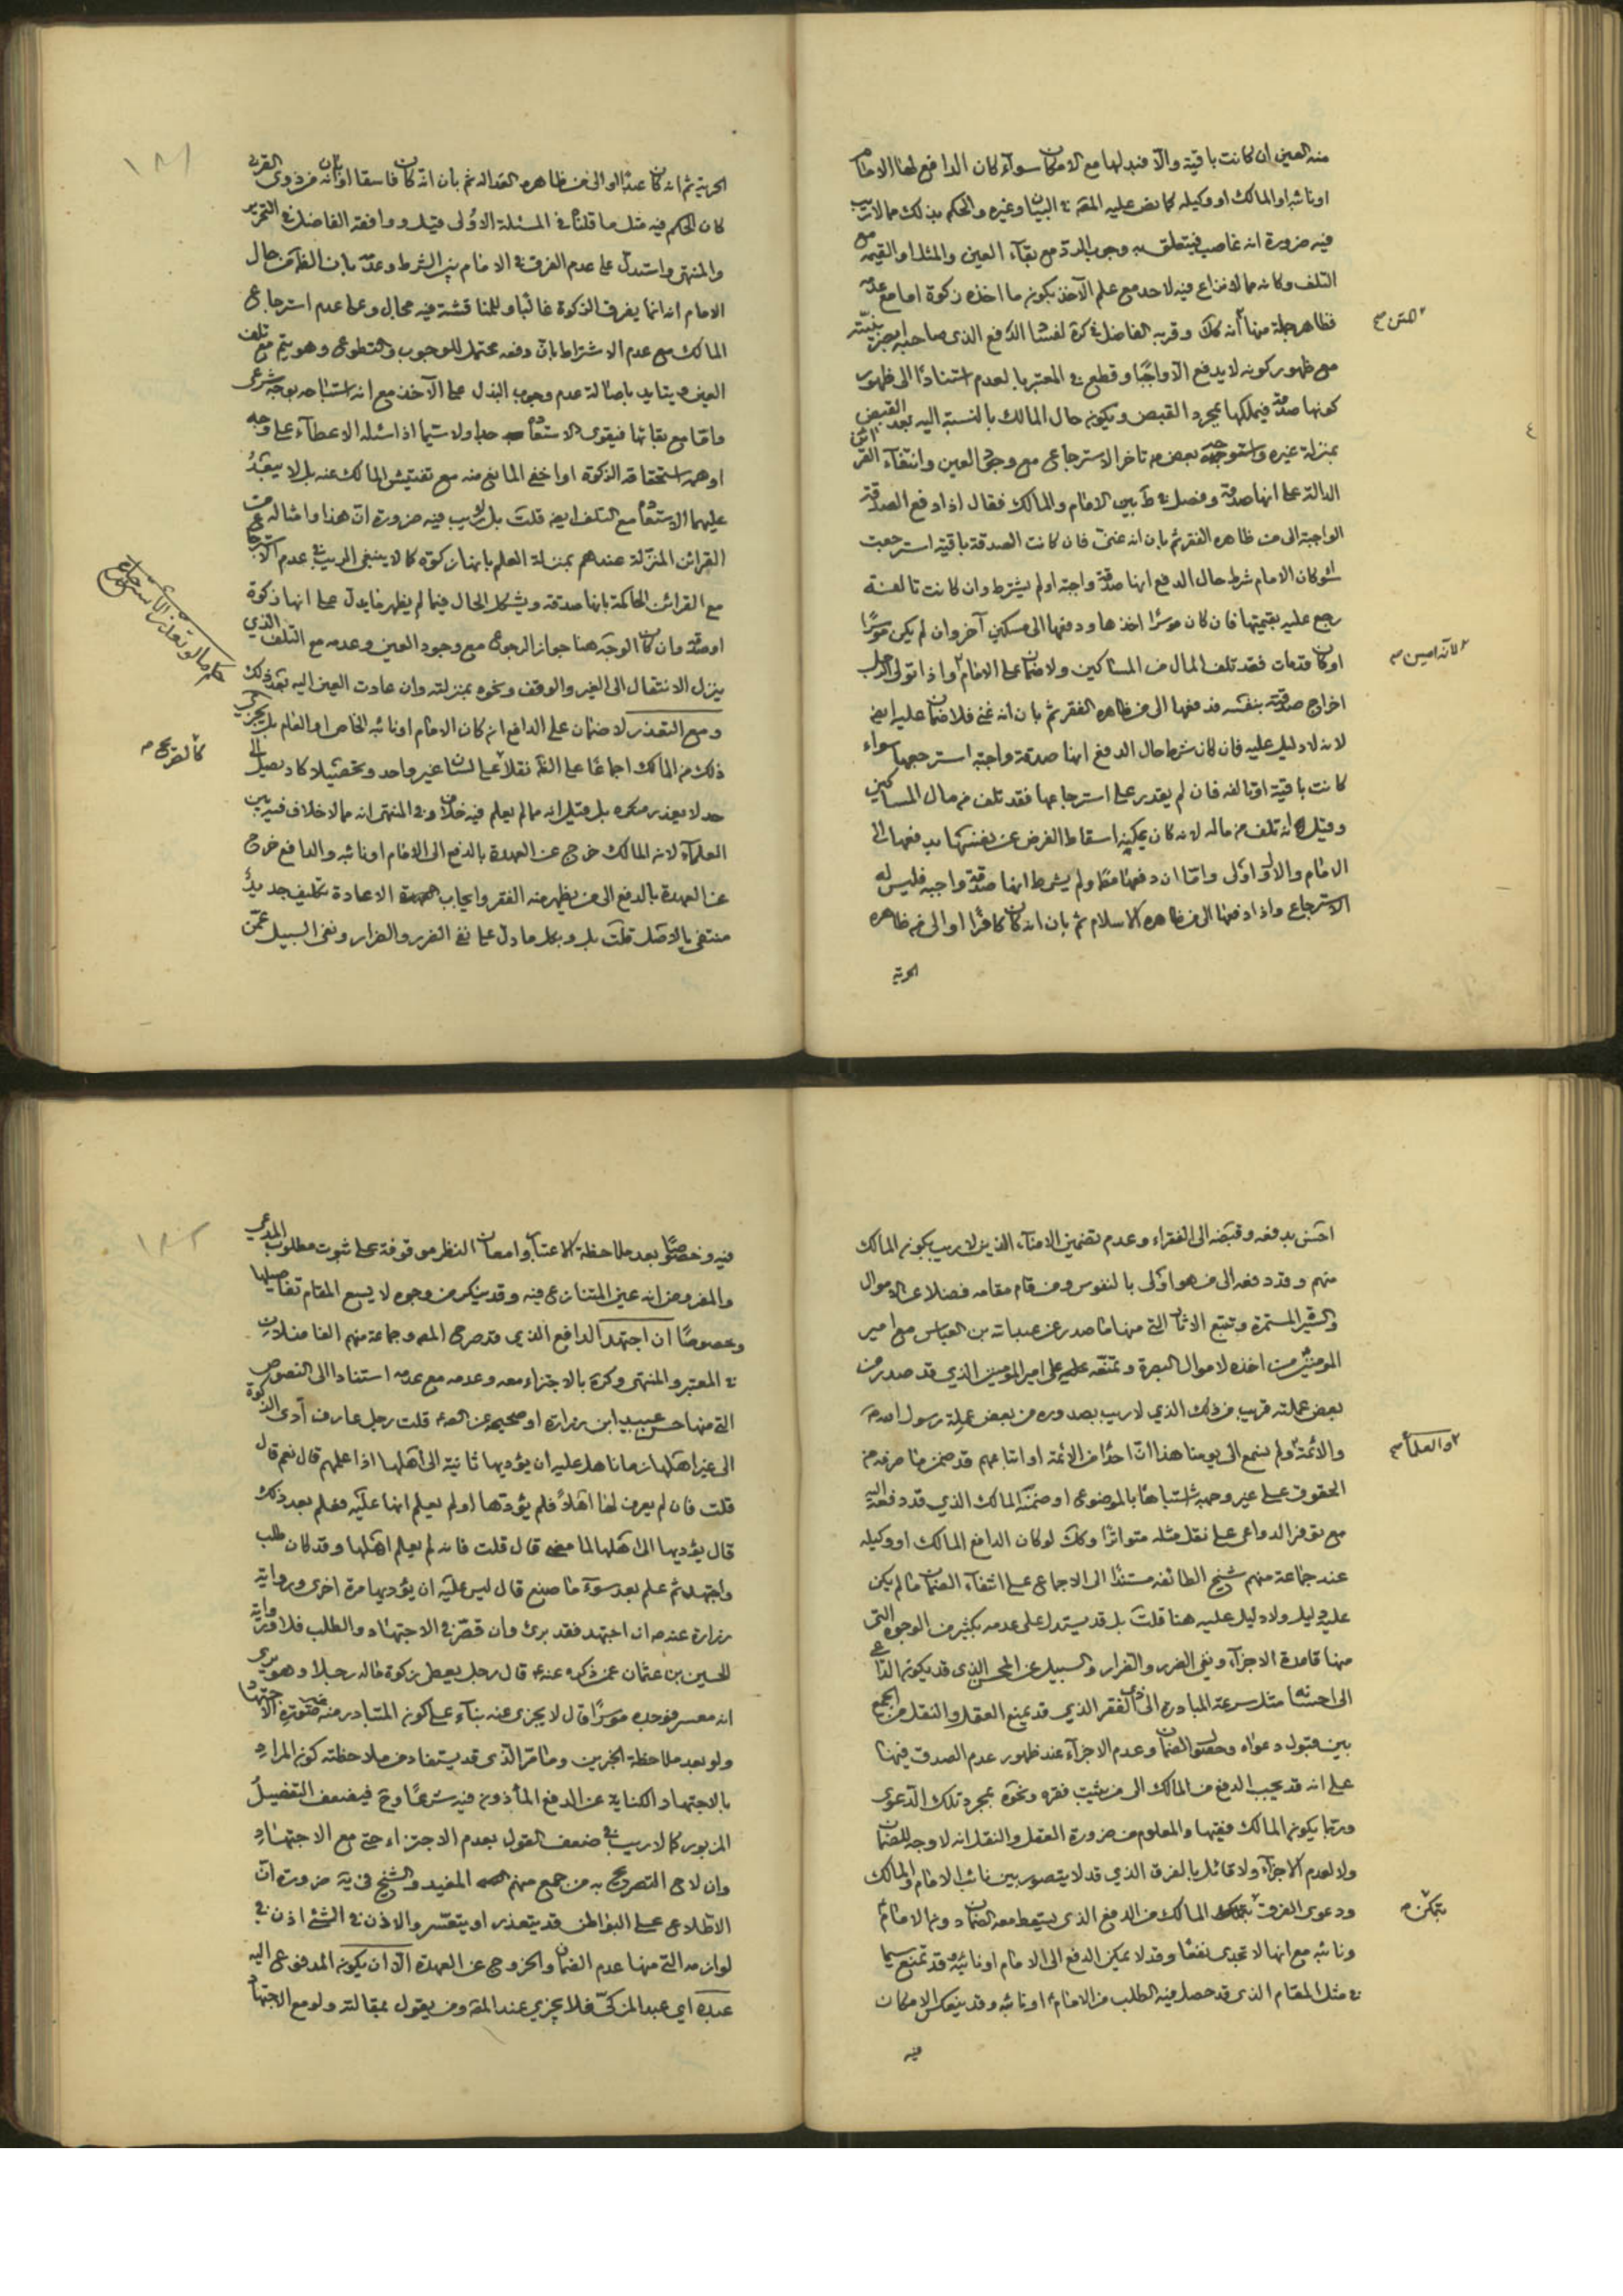 منه العين ان كانت باقية والا فبدلها مع الامكان سواء كان الدافع لها الامام
او نائبه او المالك او وكيله كما نص عليه المصه في البيان وغيره والحكم بذلك مما لا ريب
فيه ضرورة انه غاصب فيتعلق به وجوب الرد مع بقاء العين والمثل او القيمة مع
التلف وكانه مما لا نزاع فيه لاحد مع علم الآخذ بكون ما اخذه زكوة اما مع عدمه
فظاهر جملة منها انه كك وقربه الفاضل في كرة لفساد الدفع الذي صاحبه
مع ظهور كونه لا يدفع الا واجبا وقطع في المعتبر بالعدم استنادا الى ظهور
كونها صدقة فيملكها بمجرد القبض ويكون حال المالك بالنسبة اليه بعد القبض
بمنزلة غيره واستوجهه بعض من تاخر الاسترجاع مع وجود العين وانتفاء القرائن
الدالة على انها صدقة وفصل في ط بين الامام والمالك فقال اذا دفع الصدقة
الواجبة الى من ظاهره الفقر ثم بان انه غني فان كانت الصدقة باقية استرجعت
سواء كان الامام شرط حال الدفع انها صدقة واجبة او لم يشترط وان كانت تالفة
رجع عليه بقيمتها فان كان موسرا اخذها ودفعها الى مسكين آخر وان لم يكن موسرا
او كان قد مات فقد تلف المال من المساكين ولا ضمان على الامام واذا تولى الرجل
لانه امين
اخراج صدقته بنفسه فدفعها الى من ظاهره الفقر ثم بان انه غني فلا ضمان عليه ايض
لانه لا دليل عليه فان كان شرط حال الدفع انها صدقة واجبة استرجعها سواء
كانت باقية او تالفة فان لم يقدر على استرجاعها فقد تلف من مال المساكين
وقيل انه تلف من ماله لانه كان يمكنه اسقاط الفرض عن نفسه بدفعها الى
الامام والاول اولى واما ان دفعها ولم يشرط انها صدقة واجبة فليس له
الاسترجاع واذا دفعها الى من ظاهره الاسلام ثم بان انه كان كافرا او الى من ظاهره
الحرية
١٨١
الحرية ثم انه كان عبدا او الى من ظاهره العدالة ثم بان انه كان فاسقا او بان انه من ذوي القربى
كان الحكم فيه مثل ما قلناه في المسئلة الاولى قيل ووافقه الفاضل في التحرير
والمنتهى واستدل على عدم الفرق في الامام بين الشرط وعدمه بان الظاهر من حال
الامام انه انما يفرق الزكوة غالبا وللمناقشة فيه مجال وعلى عدم استرجاع
المالك مع عدم الاشتراط بان دفعه محتمل للوجوب والتطوع وهو يتم مع تلف
العين ويتايد باصالة عدم وجوب البذل على الآخذ مع انه استباحه بوجه شرعي
واما مع بقائها فيقوى الاستعادة جدا ولا سيما اذا سئله الاعطاء على وجه
اوهمه استحقاقه الزكوة او اخفى المانع منه مع تفتيش المالك عنه بل لا يبعد
عليهما الاستعادة مع التلف ايض قلت بل لا ريب فيه ضرورة ان هذا وامثاله من
القرائن المنزلة عندهم بمنزلة العلم بانها زكوة كما لا ينبغي الريب في عدم الاسترجاع
مع القرائن الحاكمة بانها صدقة ويشكل الحال فيما لم يظهر ما يدل على انها زكوة
او صدقة وان كان الوجه هنا جواز الرجوع مع وجود العين وعدمه مع التلف الذي
ينزل الانتقال الى الغير والوقف ونحوه بمنزلته وان عادت العين اليه بعد ذلك
ومع التعذر لا ضمان على الدافع ان كان الامام او نائبه الخاص او العام بل يجزي
ذلك من المالك اجماعا على الظه نقلا على لسان غير واحد وتحصيلا كاد يصل الى
حد لا يعذر منكره بل قيل انه مما لم يعلم فيه خلاف وفي المنتهى انه مما لا خلاف فيه بين
العلماء لان المالك خرج عن العهدة بالدفع الى الامام او نائبه والدافع خرج
عن العهدة بالدفع الى من يظهر منه الفقر وايجاب الاعادة تكليف جديد
منتفي بالاصل قلت بل وبكل ما دل على نفي الضرر والضرار ونفي السبيل عمن
احسن بدفعه وقبضه الى الفقراء وعدم تضمين الامناء الذين لا ريب بكون المالك
منهم وقد دفعه الى من هو اولى بالنفوس ومن قام مقامه فضلا عن الاموال
والسير المستمرة وتتبع الاثار التي منها ما صدر عن عبد الله بن العباس مع امير
المومنين من اخذه لاموال البصرة وعلى امير المومنين الذي قد صدر من
بعض عملته قريب من ذلك الذي لا ريب بصدوره من بعض عملة رسول الله ص
والائمة ولم يسمع الى يومنا هذا ان احدا من الائمة او اتباعهم قد ضمن ما صرفه من
والعلماء
الحقوق على غير وجهه اشتباها بالموضوع او ضمنه المالك الذي قد دفعه اليه
مع توفر الدواعي على نقل مثله متواترا وكك لو كان الدافع المالك او وكيله
عند جماعة منهم شيخ الطائفة مستندا الى الاجماع على انتفاء الضمان ما لم يكن
عليه دليل ولا دليل عليه هنا قلت بل قد يستدل على عدمه بكثير من الوجوه التي
منها قاعدة الاجزاء ونفي الضرر والضرار والسبيل عن المحسن الذي قد يكون الداعي
الى احسانه مثل سرعة المبادرة الى ذي الفقر الذي قد يمنع العقل والنقل من الجمع
بين قبول دعواه وحصول الضمان وعدم الاجزاء عند ظهور عدم الصدق فيها
على انه قد يجب الدفع من المالك الى من يثبت فقره ونحوه بمجرد تلك الدعوى
وربما يكون المالك فقيها والمعلوم من ضرورة العقل والنقل انه لا وجه للضمان
ولا لعدم الاجزاء ولا قائل بالفرق الذي قد لا يتصور بين نائب الامام والمالك
ودعوى الفرق بتمكن المالك من الدفع الذي يسقط معه الضمان دون الامام
ونائبه مع انها لا تجدي نفعا وقد لا يمكن الدفع الى الامام او نائبه قد تمنع سيما
في مثل المقام الذي قد حصل فيه الطلب من الامام او نائبه وقد ينعكس الامكان
فيه
١٨٢
فيه وخصوصا بعد ملاحظة الاعتبار وامعان النظر موقوفة على ثبوت مطلوب المدعي
والمفروض انه عين المتنازع فيه وقد ينكر من وجوه لا يسع المقام تفاصيلها
وخصوصا ان اجتهد الدافع الذي قد صرح المصه وجماعة منهم الفاضلان
في المعتبر والمنتهى وكرة بالاجتزاء معه وعدمه مع عدمه استنادا الى النصوص
التي منها حسن عبيد ابن زرارة او صحيحه عن الصه قلت رجل عارف أدى الزكوة
الى غير اهلها زمانا هل عليه ان يؤديها ثانية الى اهلها اذا علمهم قال نعم قال
قلت فان لم يعرف لها اهلا فلم يؤدها او لم يعلم انها عليه فعلم بعد ذلك
قال يؤديها الى اهلها لما مضى قال قلت فانه لم يعلم اهلها وقد كان طلب
واجتهد ثم علم بعد سوء ما صنع قال ليس عليه ان يؤديها مرة اخرى ورواية
زرارة عنه ان اجتهد فقد برئ وان قصر في الاجتهاد والطلب فلا ورواية
الحسين بن عثمان عمن ذكره عنه قال رجل يعطي زكوة ماله رجلا وهو يرى
انه معسر فوجده موسرا قال لا يجزي عنه بناء على كون المتبادر منه الاجتهاد
ولو بعد ملاحظة الخبرين وما مر الذي قد يستفاد من ملاحظته كون المراد
بالاجتهاد الكناية عن الدفع المأذون فيه شرعا وح فيضعف التفصيل
المزبور كما لا ريب في ضعف القول بعدم الاجتزاء حتى مع الاجتهاد
وان لاح التصريح به من جمع منهم المفيد والشيخ في ية ضرورة ان
الاطلاع على البواطن قد يتعذر او يتعسر والاذن في الشئ اذن في
لوازمه التي منها عدم الضمان والخروج عن العهدة الا ان يكون المدفوع اليه
عبده اي عبد المزكي فلا يجزي عند المصه ومن يقول بمقالته ولو مع الاجتهاد